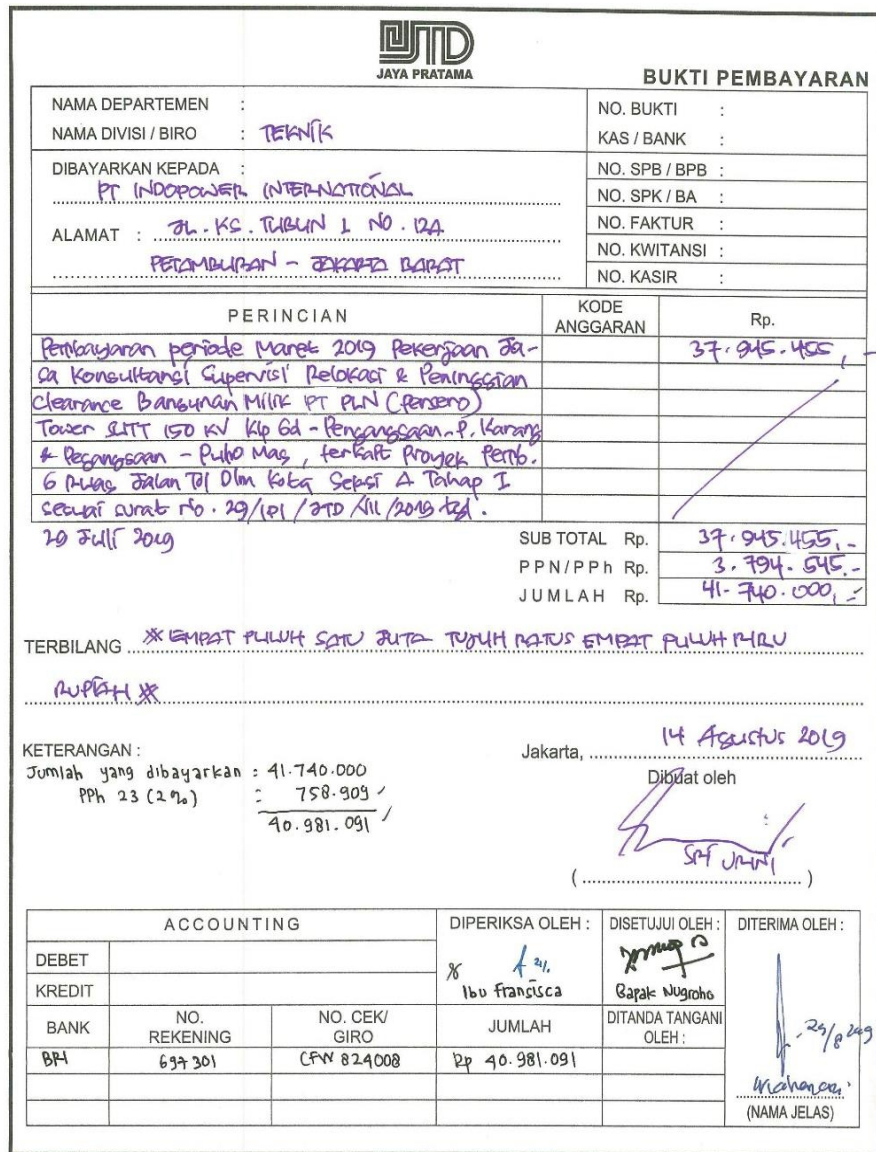 JTD
JAYA PRATAMA
BUKTI PEMBAYARAN
NAMA DEPARTEMEN :
NAMA DIVISI / BIRO : TEKNIK
NO. BUKTI :
KAS / BANK :
DIBAYARKAN KEPADA :
PT INDOPOWER INTERNATIONAL
ALAMAT : JL. KS. TUBUN I NO. 12A
PETAMBURAN - JAKARTA BARAT
NO. SPB / BPB :
NO. SPK / BA :
NO. FAKTUR :
NO. KWITANSI :
NO. KASIR :
PERINCIAN KODE ANGGARAN Rp.
Pembayaran periode Maret 2019 Pekerjaan Ja- 37.945.455,-
sa Konsultansi Supervisi Relokasi & Peninggian
Clearance Bangunan Milik PT PLN (Persero)
Tower SUTT 150 KV Klp Gd - Pengangsaan - P. Karang
& Pegangsaan - Pulo Mas, terkait Proyek Pemb.
6 Ruas Jalan Tol Dlm Kota Seksi A Tahap I
sesuai surat no. 29/IPI/JTD/VII/2019 tgl.
29 Juli 2019
SUB TOTAL Rp. 37.945.455,-
PPN/PPh Rp. 3.794.545.-
JUMLAH Rp. 41.740.000,-
TERBILANG # EMPAT PULUH SATU JUTA TUJUH RATUS EMPAT PULUH RIBU
RUPIAH #
KETERANGAN :
Jumlah yang dibayarkan : 41.740.000
PPh 23 (2%) : 758.909
40.981.091
Jakarta, 14 Agustus 2019
Dibuat oleh
SRI
(....................)
ACCOUNTING
DEBET
KREDIT
DIPERIKSA OLEH :
Ibu Fransisca
DISETUJUI OLEH :
Bapak Nugroho
DITERIMA OLEH :
BANK NO. REKENING NO. CEK/ GIRO JUMLAH DITANDA TANGANI OLEH :
BRI 697301 CFW 824008 Rp 40.981.091
(NAMA JELAS)